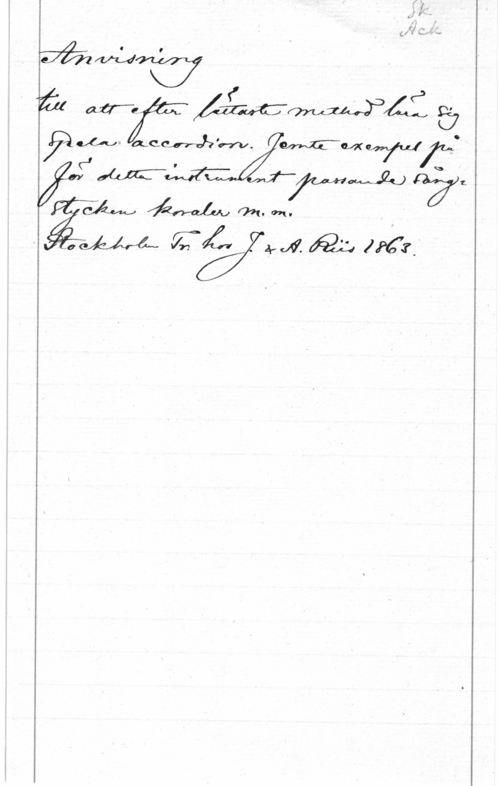 Sk
Ack
Anvisning
till att efter lättaste method lära sig
spela accordion. Jemte exempel på
för detta instrument passande sång-
stycken koraler m. m.
Stockholm Tr. hos J. & A. Riis 1863.